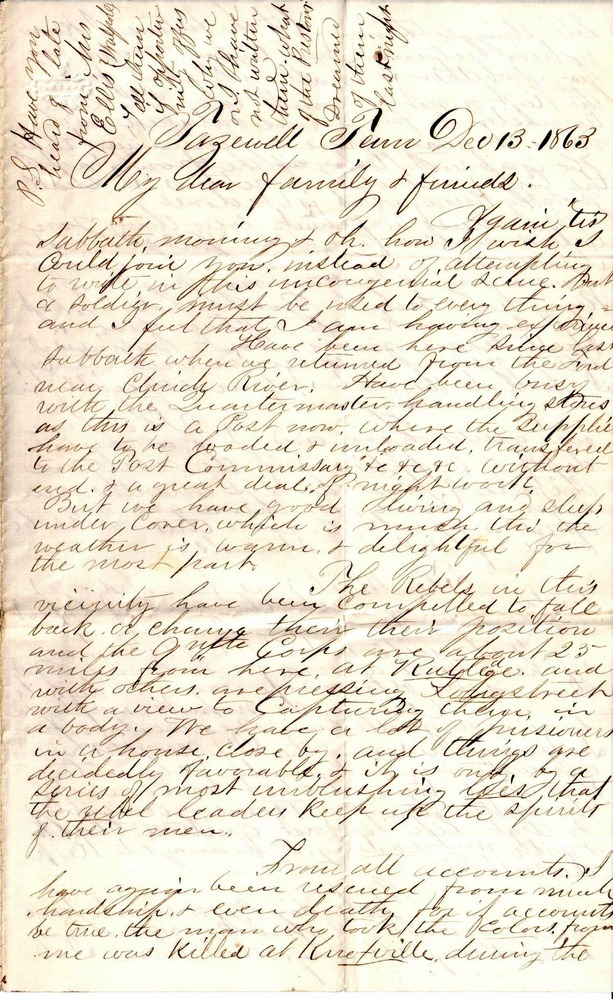 P.S. Have you
heard of late
from Mrs
Ella
tell them
if
not
why we
or I have
not written
them what
of the Prestons
Dreamed
of them
last night
Tazewell Tenn Dec 13 - 1863
My dear family & friends.
Again 'tis
Sabbath morning & oh. how I wish I
could join you, instead of attempting
to write in this uncongenial scene. But
a soldier must be used to every thing -
and I feel that I am having experience
Have been here since last
Sabbath when we returned from the Ford
near Clinch River. Have been busy
with the Quartermaster, handling stores
as this is a Post now, where the supplies
have to be loaded & unloaded, transfered
to the Post Commissary &c &c &c. without
end. & a great deal of night work.
But we have good living and sleep
under cover, which is much, tho the
weather is warm, & delightful for
the most part.
The Rebels in this
vicinity have been compelled to fall
back or change their their position
and the 9th Corps are about 25
miles from here, at Rutlege. and
with others. are pressing Longstreet
with a view to capturing them, in
a body. We have a lot of prisoners
in a house, close by, and things are
decidedly favorable, & it is only by a
series of most unblushing lies that
the rebel leaders keep up the spirits
of their men.
From all accounts, I
have again been rescued from much
hardship, & even death, for if accounts
be true, the man who took the Colors, from
me was killed at Knoxville, during the